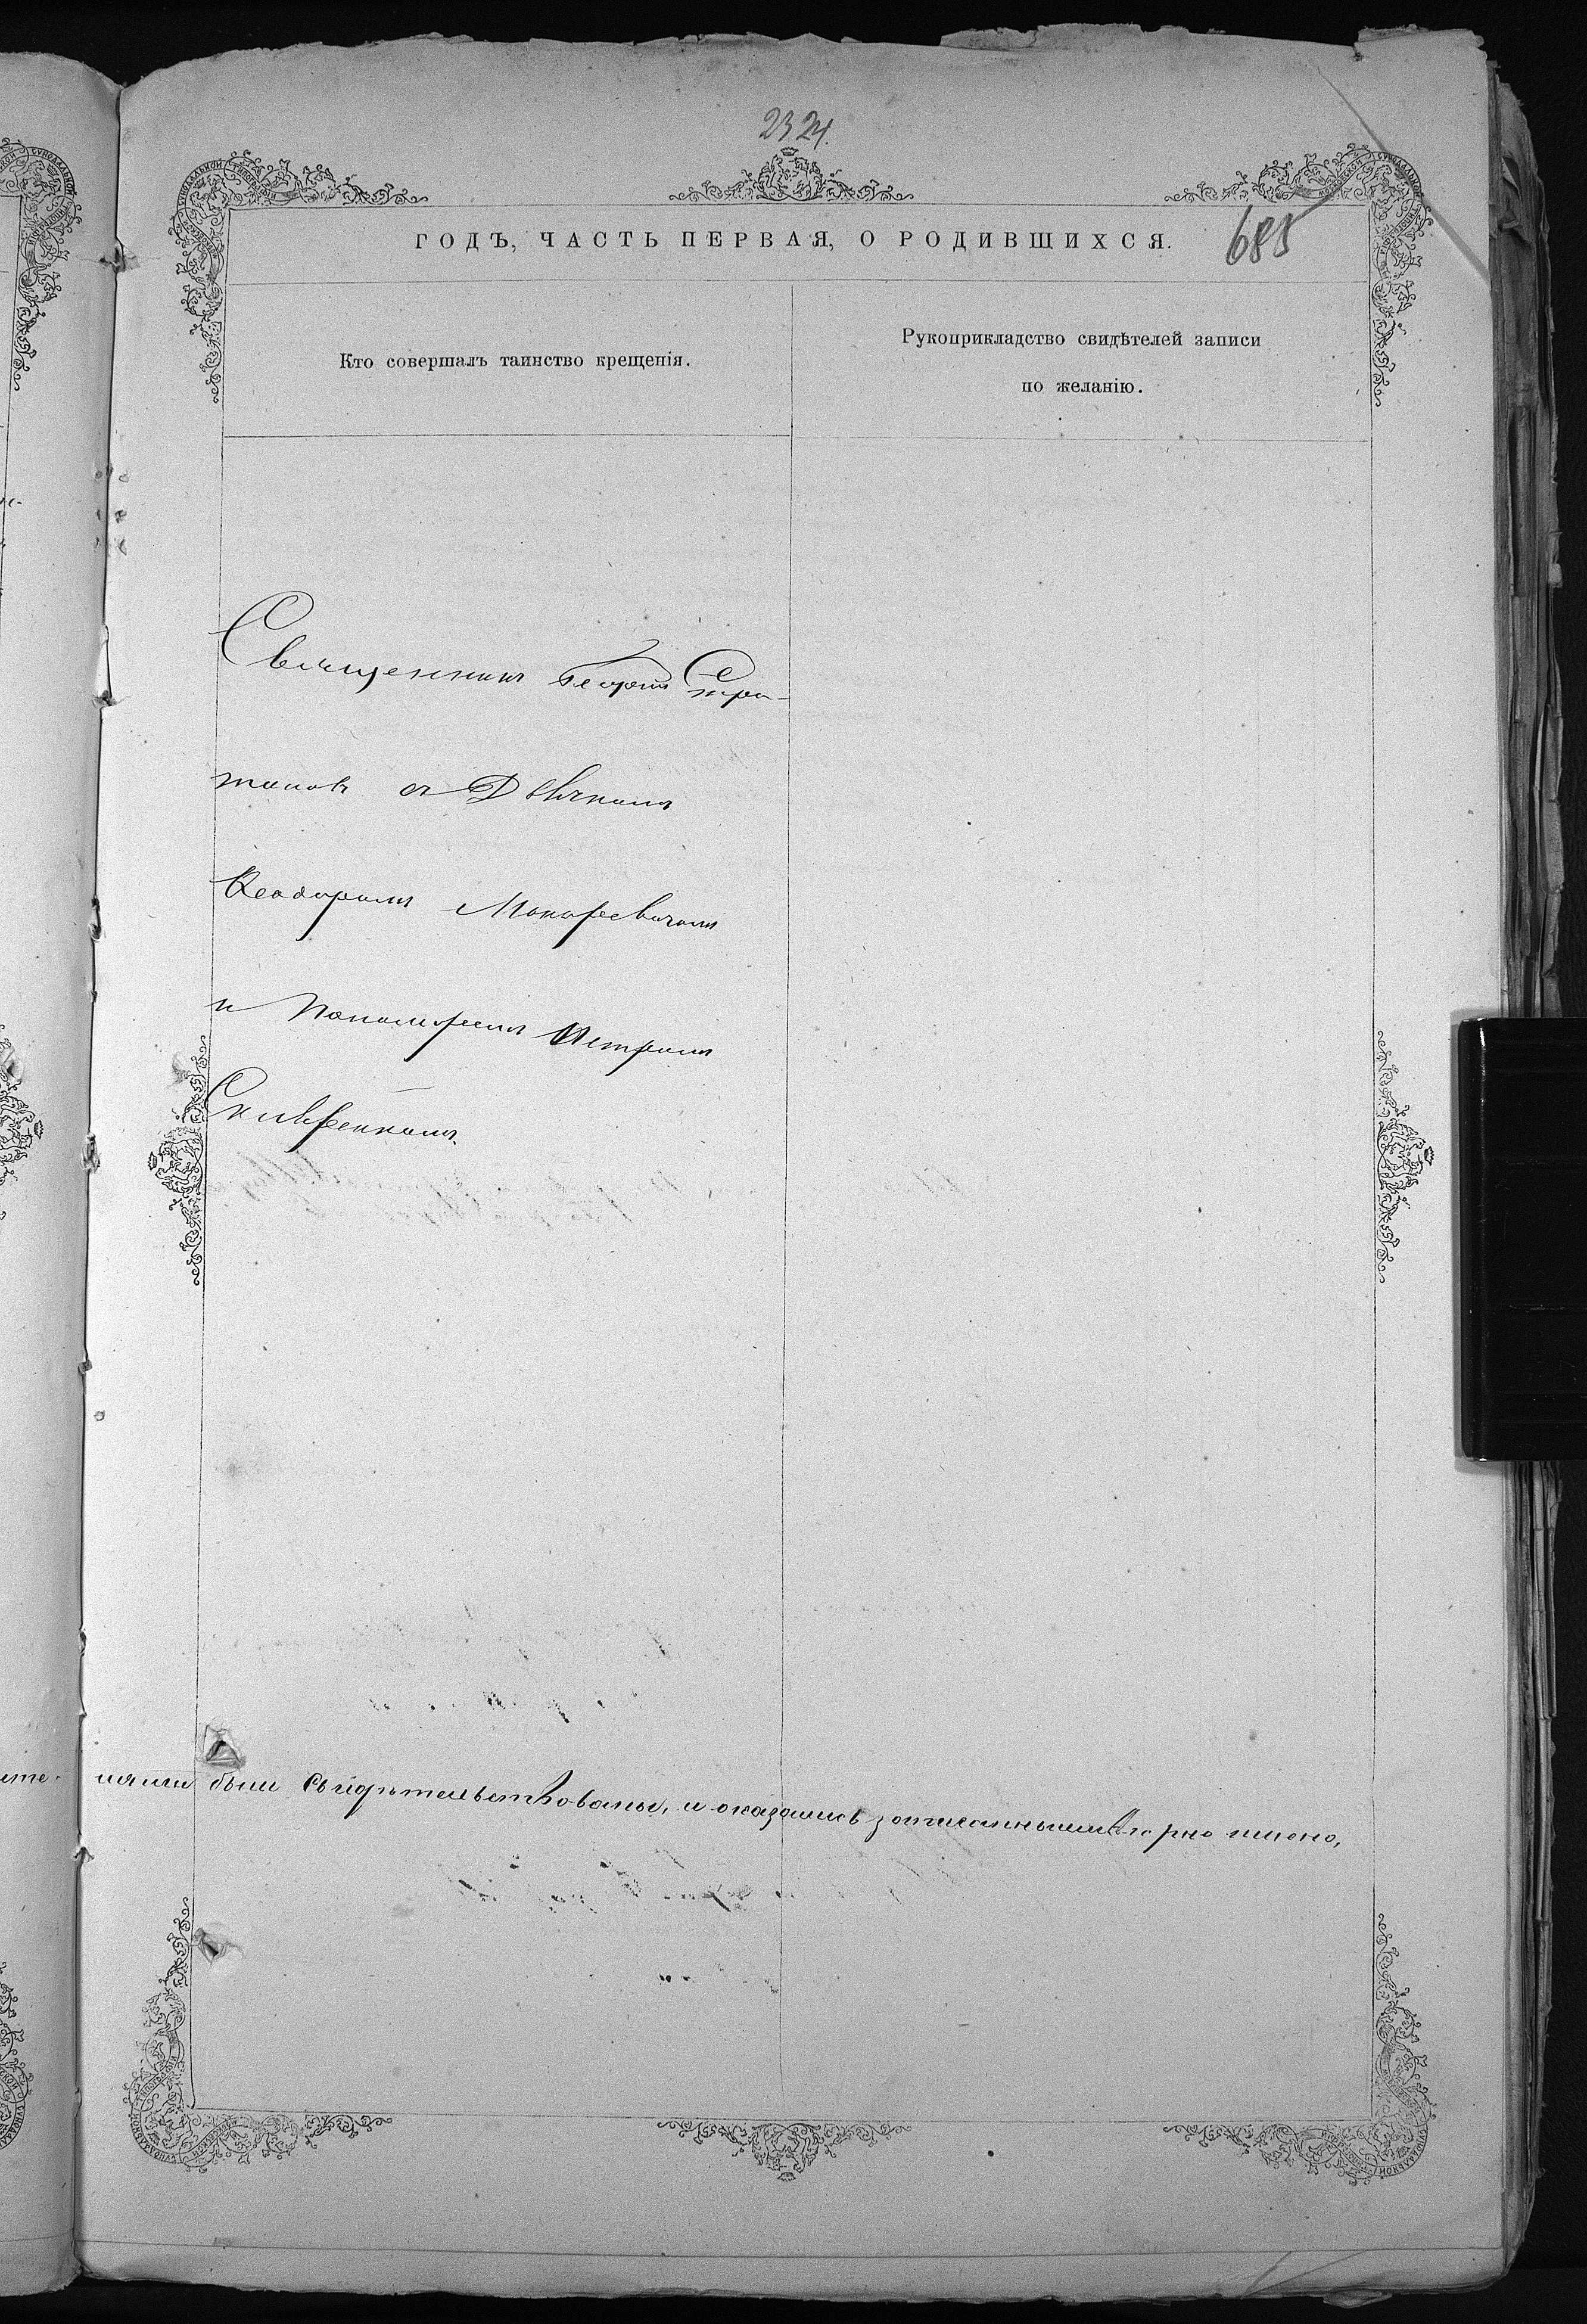 2324.
ГОДЪ, ЧАСТЬ ПЕРВАЯ, О РОДИВШИХСЯ.
685
Кто совершалъ таинство крещенія.
Рукоприкладство свидѣтелей записи
по желанію.
Священникъ Георгій
съ Дьячкомъ
Ѳеодоромъ Макаревичемъ
и Пономаремъ Петромъ
были свидѣтельствованы, и оказались записанными вѣрно